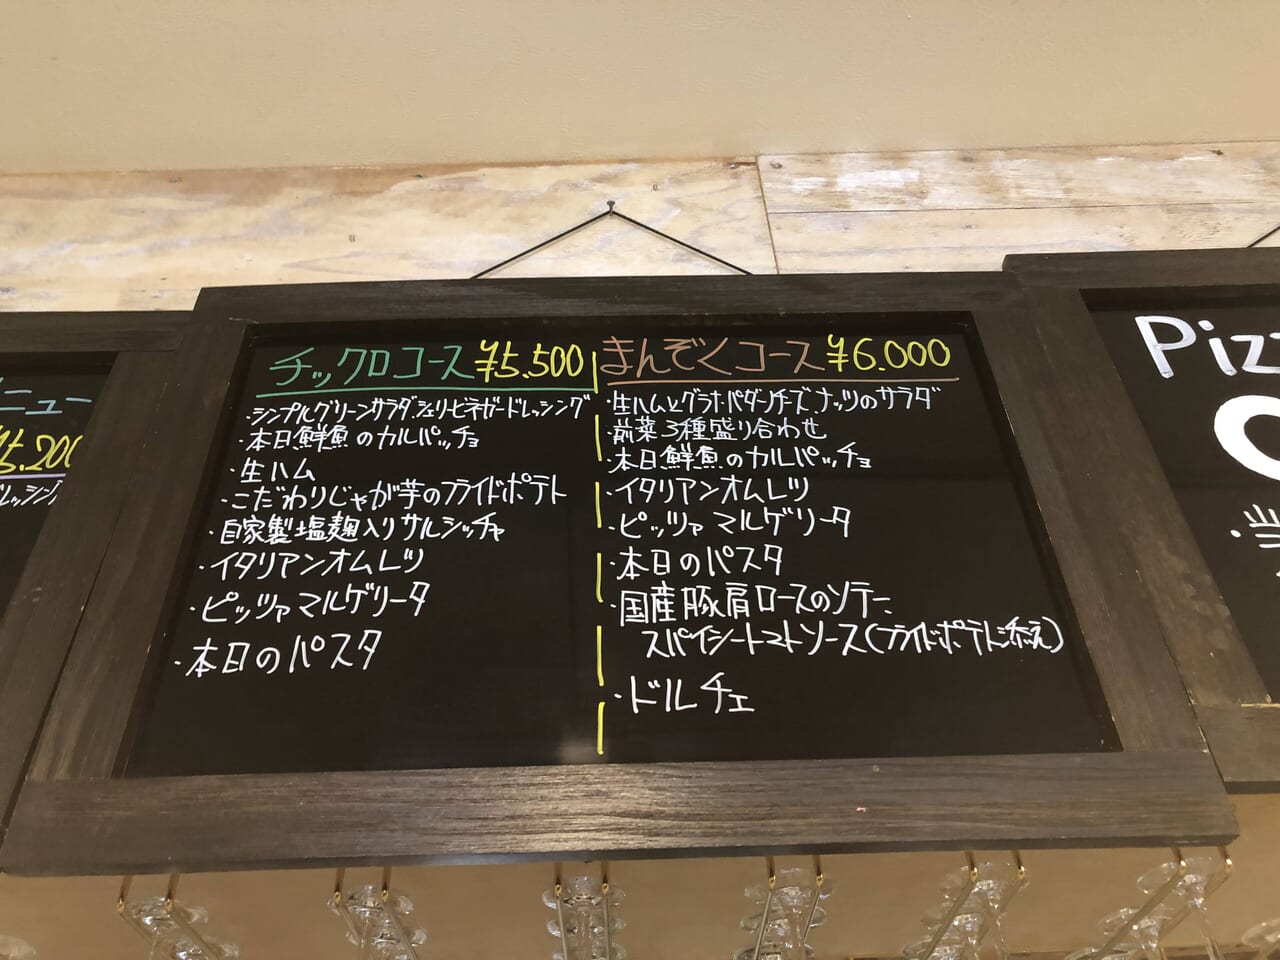 チックロコース ¥5,500
・シンプルグリーンサラダ、シェリービネガードレッシング
・本日鮮魚のカルパッチョ
・生ハム
・こだわりじゃが芋のフライドポテト
・自家製塩麹入りサルシッチャ
・イタリアンオムレツ
・ピッツァ マルゲリータ
・本日のパスタ
まんぞくコース ¥6,000
・生ハムとグラナ・パダーノチーズ、ナッツのサラダ
・前菜3種盛り合わせ
・本日鮮魚のカルパッチョ
・イタリアンオムレツ
・ピッツァ マルゲリータ
・本日のパスタ
・国産豚肩ロースのソテー、
スパイシートマトソース(フライドポテト添え)
・ドルチェ
ニュー
¥5,200
レッシング
Pizz